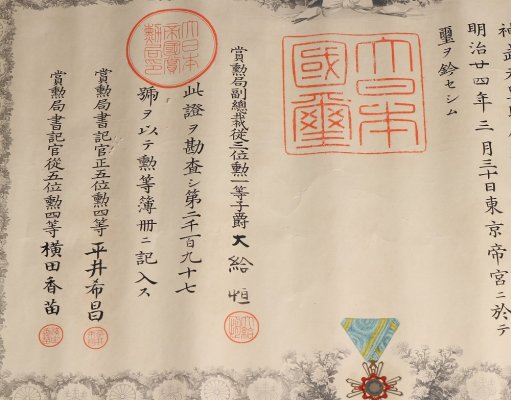 明治廿四年三月三十日東京帝宮ニ於テ
璽ヲ鈐セシム
大日本國璽
賞勲局副總裁從三位勲一等子爵大給恒
此證ヲ勘査シ第二千百九十七
號ヲ以テ勲等簿冊ニ記入ス
大日本帝國賞勲局印
賞勲局書記官正五位勲四等平井希昌
賞勲局書記官從五位勲四等横田香苗